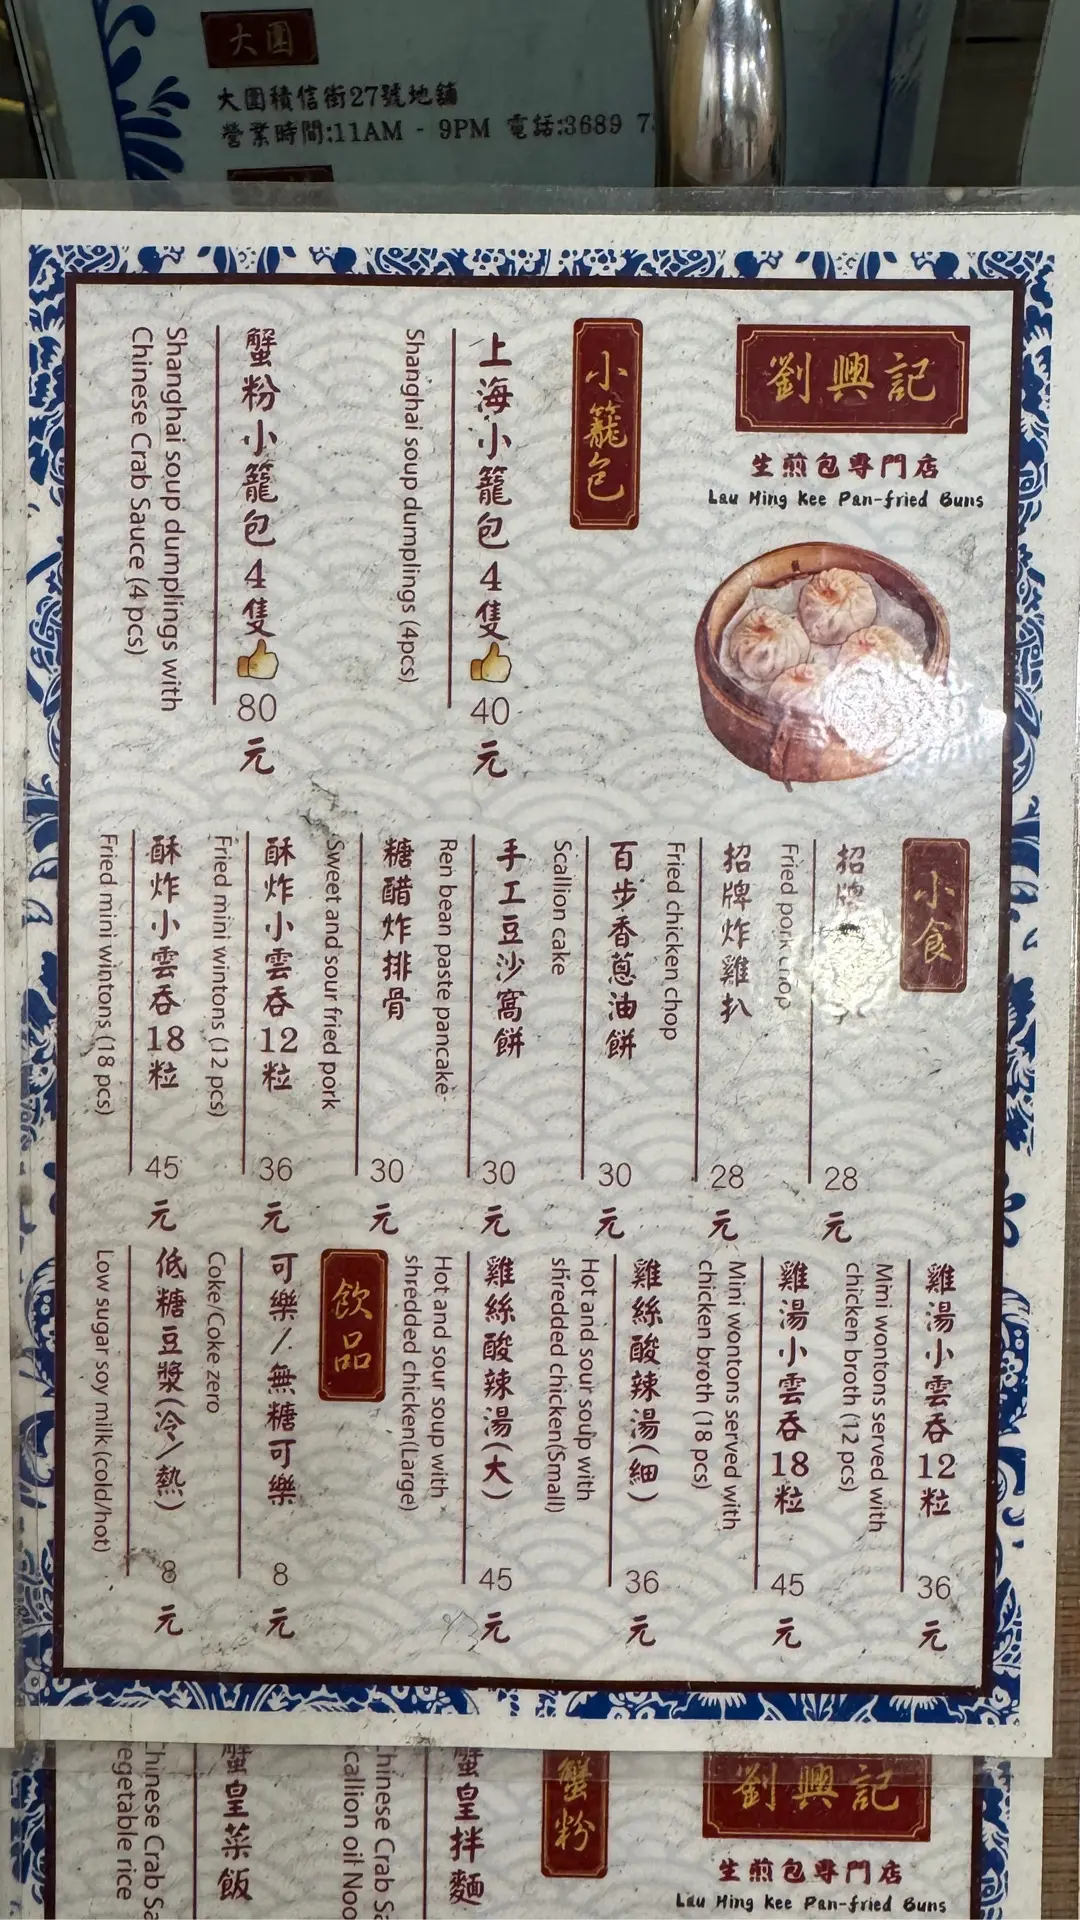 大圍
大圍積信街27號地舖
營業時間:11AM - 9PM 電話:3689 7
劉興記
生煎包專門店
Lau Hing Kee Pan-fried Buns
小籠包
上海小籠包4隻 40元
Shanghai soup dumplings (4pcs)
蟹粉小籠包4隻 80元
Shanghai soup dumplings with
Chinese Crab Sauce (4 pcs)
小食
招牌 28元
Fried pork chop
招牌炸雞扒 28元
Fried chicken chop
百步香蔥油餅 30元
Scallion cake
手工豆沙窩餅 30元
Ren bean paste pancake
糖醋炸排骨 30元
Sweet and sour fried pork
酥炸小雲吞12粒 36元
Fried mini wintons (12 pcs)
酥炸小雲吞18粒 45元
Fried mini wintons (18 pcs)
雞湯小雲吞12粒 36元
Mini wontons served with
chicken broth (12 pcs)
雞湯小雲吞18粒 45元
Mini wontons served with
chicken broth (18 pcs)
雞絲酸辣湯(細) 36元
Hot and sour soup with
shredded chicken(Small)
雞絲酸辣湯(大) 45元
Hot and sour soup with
shredded chicken(Large)
飲品
可樂/無糖可樂 8元
Coke/Coke zero
低糖豆漿(冷/熱) 8元
Low sugar soy milk (cold/hot)
劉興記
生煎包專門店
Lau Hing Kee Pan-fried Buns
蟹粉
蟹皇拌麵
Chinese Crab Sa
callion oil Noo
蟹皇菜飯
Chinese Crab Sa
egetable rice